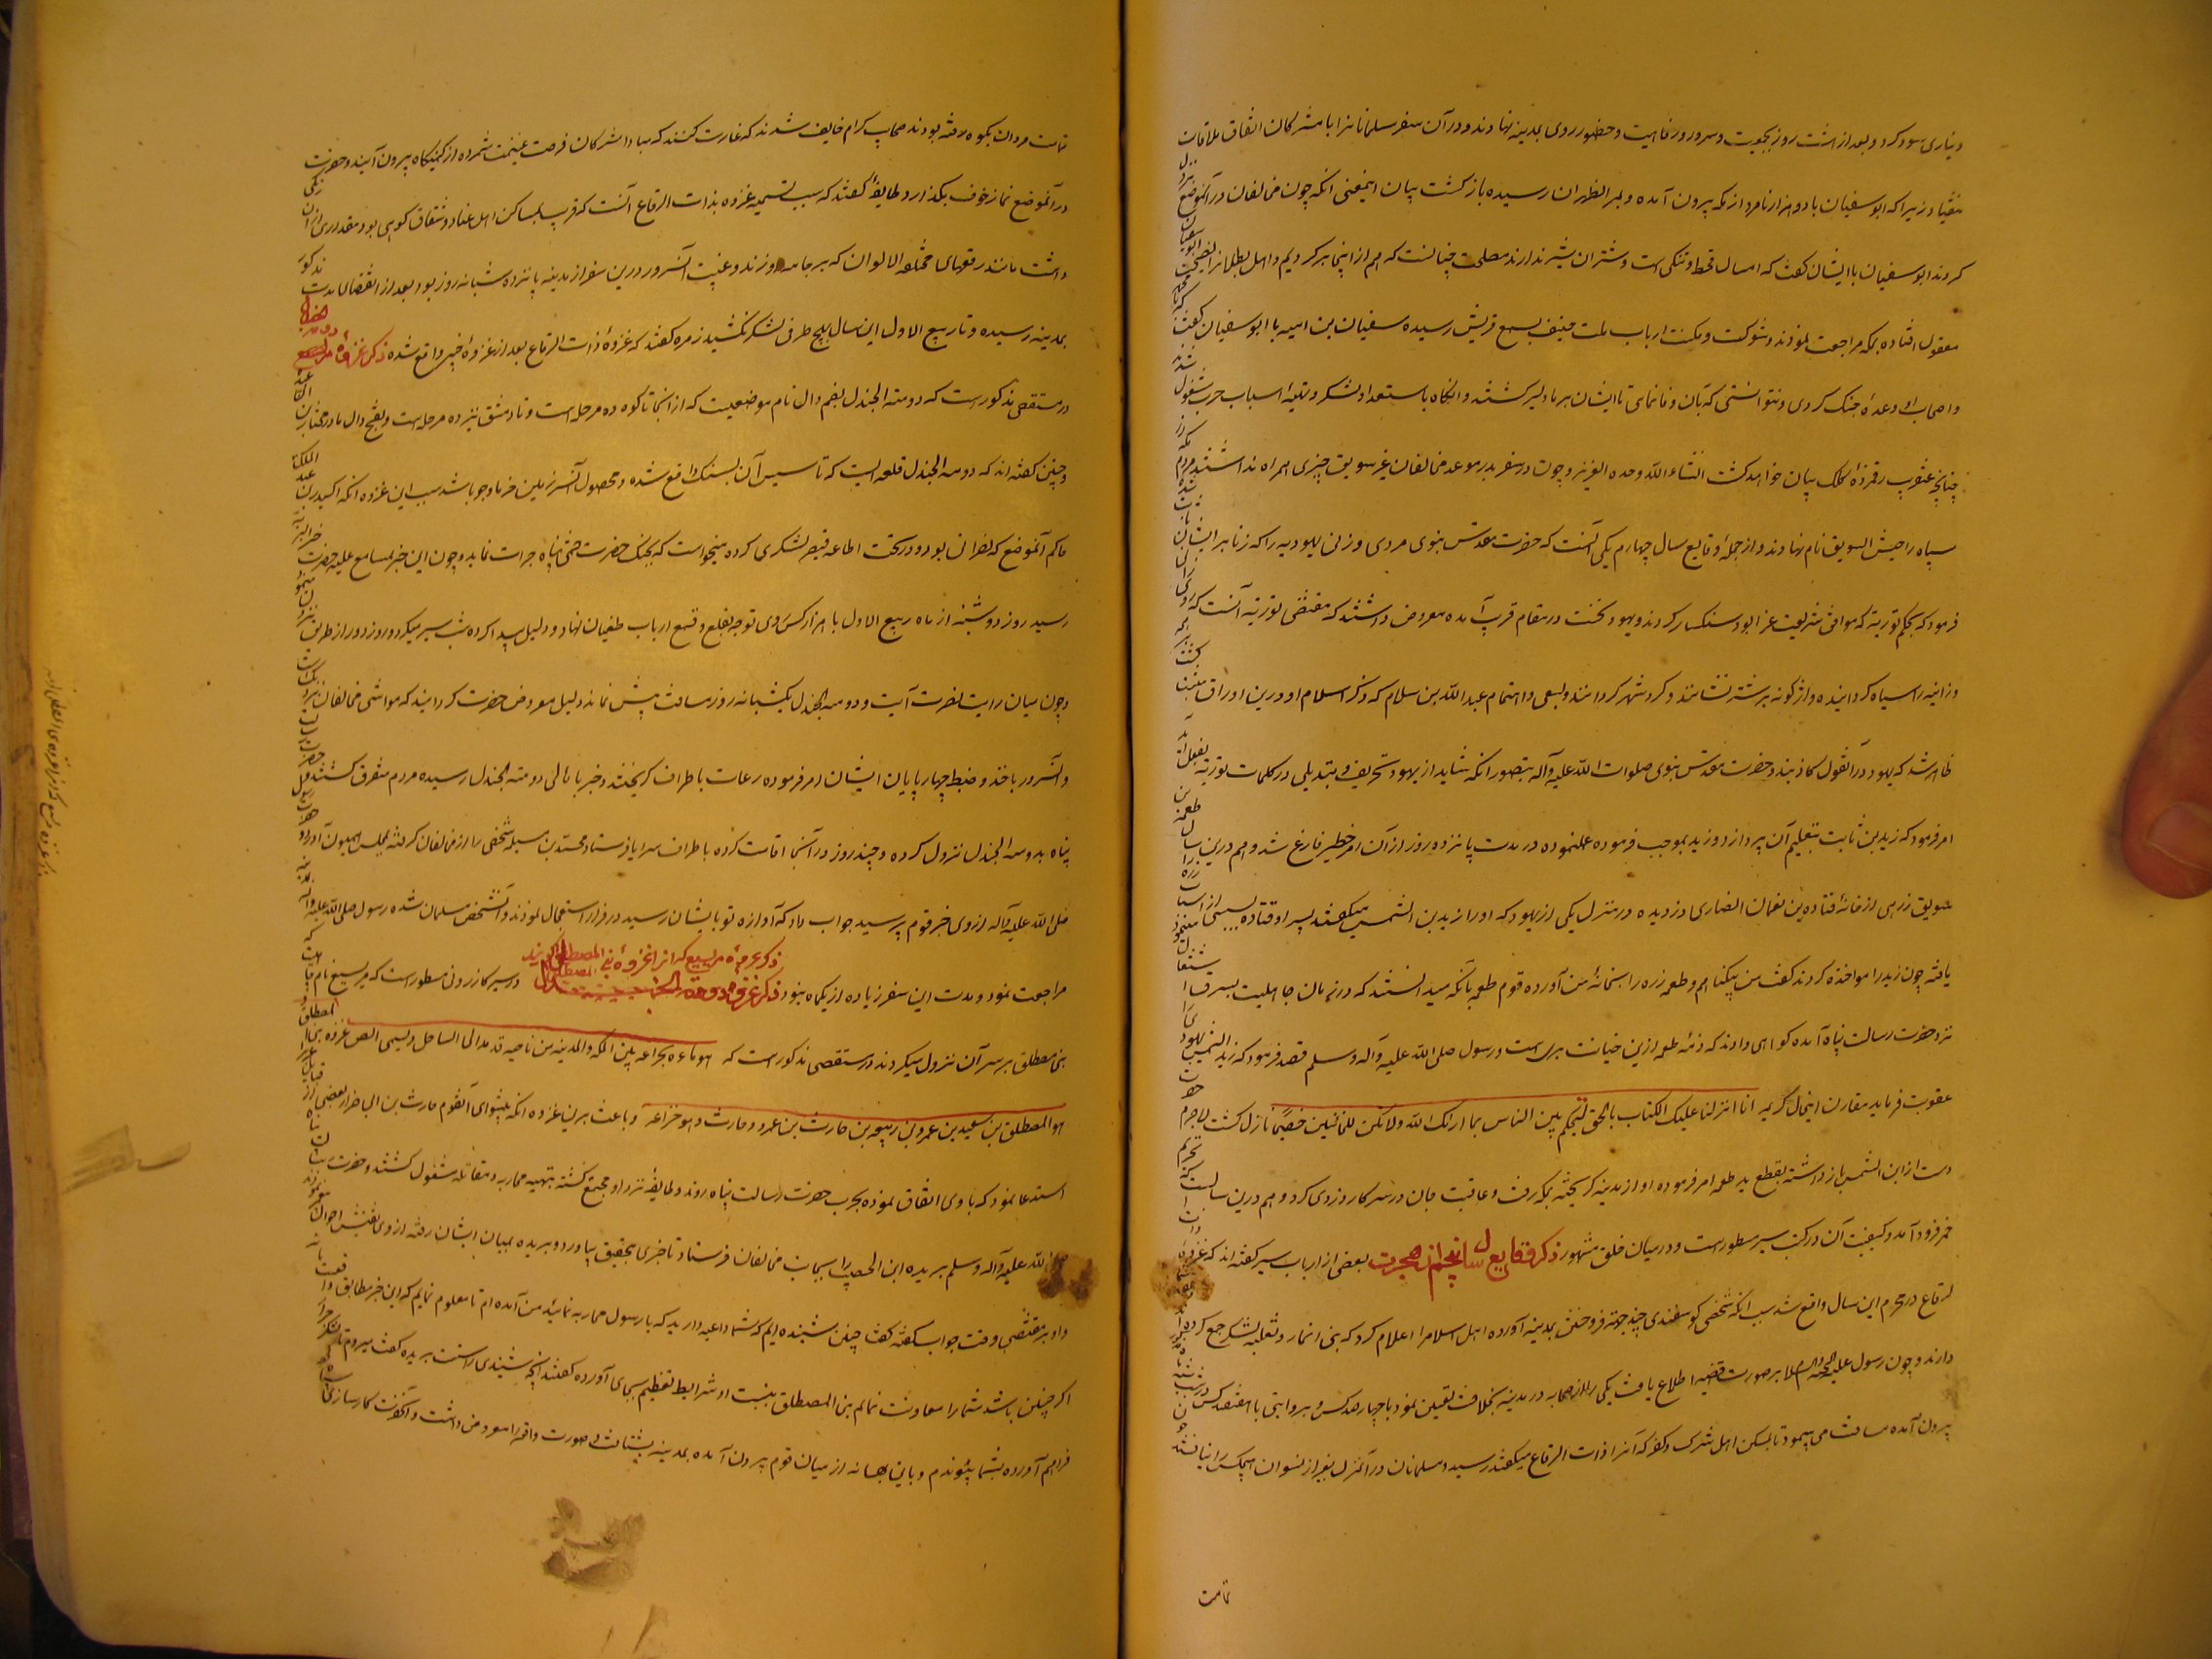 دیناری سود کرد و بعد از هشت روز بجمعیت و سرور و رفاهیت و حضور روی بمدینه نهادند و در آن سفر مسلمانانرا با مشرکان اتفاق ملاقات
نیفتاد زیرا که ابوسفیان با دو هزار نامرد از مکه بیرون آمده و بمر الظهران رسیده بازگشت بیان اینمعنی انکه چون مخالفان در آنموضع نزول
کردند ابوسفیان با ایشان گفت که امسال قحط و تنکی است و شتران شیر ندارند مصلحت چنانست که هم از اینجا برگردیم و اهل بطلانرا نصیحت ابوسفیان
معقول افتاده بمکه مراجعت نمودند و شوکت و مکنت ارباب ملت حنیف بسمع قریش رسیده سفیان بن امیه با ابوسفیان گفت که با محمد
و اصحاب او وعده جنک کردی و نتوانستی که بآن وفا نمای تا ایشان بر ما دلیر گشتند و انکاه باستعداد لشکر و تهیهٔ اسباب حرب مشغول شدند
چنانچه عنقریب رقمزدهٔ کلک بیان خواهد گشت انشاء الله وحده العزیز و چون در سفر بدر موعد مخالفان غیر سویق چیزی همراه نداشتند مردم مکه آن
سپاه را جیش السویق نام نهادند و از جملهٔ وقایع سال چهارم یکی آنست که حضرت مقدس نبوی مردی و زنی یهودیه را که زنا بر ایشان ثابت شده
فرمود که بحکم توریة که موافق شریعت غرا بود سنکسار کردند و یهود نخست در مقام فریب آمده معروض داشتند که مقتضی توریة آنست که روی زانی
و زانیه را سیاه کردانیده واژکونه بر شتر نشانند و کرد شهر کردانند و بسعی و اهتمام عبد الله بن سلام که ذکر اسلام او درین اوراق مثبت گشته
ظاهر شد که یهود در آنقول کاذبند و حضرت مقدس نبوی صلوات الله علیه و آله بتصور انکه شاید از یهود تحریف و تبدیلی در کلمات توریة بفعل آید
امر فرمود که زید بن ثابت بتعلیم آن پردازد و زید بموجب فرموده عمل نموده در مدت پانزده روز از آن امر خطیر فارغ شد و هم درین سال طعمة بن
سویق زرهی از خانهٔ قتاده بن نعمان انصاری دزدیده در منزل یکی از یهود که او را زید بن السمین میکفتند پسر او قتاده
یافته چون زید را مواخذه کردند گفت من بیکناهم و طعمه زره را بخانهٔ من آورده قوم طعمه بآنکه میدانستند که در زمان جاهلیت بسرقه اشتغال
نزد حضرت رسالت پناه آمده کواهی دادند که ذمهٔ طعمه ازین خیانت بری است و رسول صلی الله علیه و آله وسلم قصد فرمود که زید السمین یهود را
عقوبت فرماید مقارن اینحال کریمه انا انزلنا علیک الکتاب بالحق لتحکم بین الناس بما اریک الله ولا تکن للخائنین خصیما نازل گشت لاجرم حضرت
دست از ابن السمین بازداشته بقطع ید طعمه امر فرموده او از مدینه کریخته بمکه رفت و عاقبت جان در سر کار دزدی کرد و هم درین سال تحریم
خمر فرود آمد و کیفیت آن در کتب سیر مسطور است و در میان خلق مشهور ذکر وقایع سال پنجم از هجرت بعضی از ارباب سیر کفته اند که غزوهٔ ذات
الرقاع در محرم این سال واقع شد سبب انکه شخصی کوسفندی چند جهة فروختن بمدینه آورده اهل اسلام را اعلام کرد که بنی انمار و ثعلبه لشکر جمع کرده
دارند و چون رسول علیه السلام بر صورت قضیه اطلاع یافت یکی را از صحابه در مدینه بخلافت تعیین نمود با چهارصد کس و بروایتی با هفتصد کس
بیرون آمده مسافت می پیمود تا بمسکن اهل شرک و کفر که آنرا ذات الرقاع میکفتند رسید و مسلمانان در آنمنزل بغیر از نسوان هیچکس را نیافتند
تمامت
تمامت مردان بکوه رفته بودند صحابه کرام خایف شدند که غارت کنند که مبادا مشرکان فرصت غنیمت شمرده از کمینکاه بیرون آیند و حضرت
در آنموضع نماز خوف بکذارد و طایفهٔ کفتند که سبب تسمیه غزوه بذات الرقاع آنست که قریب بمساکن اهل عناد و شقاق کوهی بود مقدار
داشت مانند رقعهای مختلف الالوان که بر جامه دوزند و غیبت آنسرور درین سفر از مدینه پانزده شبانه روز بود بعد از انقضای مدت مذکور
بمدینه رسیده و تا ربیع الاول این سال بهیچ طرف لشکر نکشید زمره کفتند که غزوهٔ ذات الرقاع بعد از غزوهٔ خیبر واقع شده ذکر غزوهٔ دومة الجندل
در مستقصی مذکور است که دومة الجندل بضم دال نام موضعیست که از آنجا تا کوفه ده مرحله است و تا دمشق نیز ده مرحله است و بفتح دال
و چنین کفته اند که دومة الجندل قلعه ایست که تاسیس آن بسنک واقع شده و محصول آنسرزمین خرما و جو باشد سبب این غزوه انکه اکیدر بن عبد الملک
حاکم آنموضع که نصرانی بود و در تحت اطاعه قیصر لشکری کرده میخواست که بجنک حضرت ختمی پناه جرات نماید و چون این خبر بمسامع علیه حضرت خیر البریه
رسید روز دوشنبه از ماه ربیع الاول با هزار کس روی توجه بقلع و قمع ارباب طغیان نهاد و دلیل پیدا کرده شب سیر میکرد و روز دور از طریق نزول مینمود
و چون میان رایت نصرت آیت و دومة الجندل یکشبانه روز مسافت بیش نماند دلیل معروض حضرت کردانید که مواشی مخالفان نزدیک است
و آنسرور باخذ و ضبط چهارپایان ایشان امر فرموده رعات باطراف کریختند و خبر باهالی دومة الجندل رسیده مردم متفرق کشتند و حضرت رسالت
پناه بدومة الجندل نزول کرده و چند روز در آنجا اقامت کرده باطراف سرایا فرستاد محمد بن مسلمه شخصی را از مخالفان کرفته بمجلس همیون آورد و حضرت رسول
صلی الله علیه و آله از وی خبر قوم پرسید جواب داد که آوازه تو بایشان رسید در فرار استعجال نمودند و آنشخص مسلمان شده رسول صلی الله علیه و آله بمدینه
مراجعت نمود و مدت این سفر زیاده از یکماه نبود ذکر غزوهٔ مریسیع که انرا غزوهٔ بنی المصطلق کویند در سیر کازرونی مسطور است که مریسیع نام چاهی است که
بنی مصطلق بر سر آن نزول میکردند و در مستقصی مذکور است که هو ماء لخزاعه بین المکه والمدینه من ناحیه قدید الی الساحل و یسمی ایضا غزوه بنی المصطلق و
هو المصطلق بن سعید بن عمرو بن ربیعه بن حارث بن عمرو و حارث و هو خزاعه و باعث برین غزوه انکه پیشوای آنقوم حارث بن ابی ضرار بعضی از قبایل عرب را
استدعا نمود که با وی اتفاق نموده بحرب حضرت رسالت پناه روند و طایفهٔ نزد او مجتمع کشته بتهیه محاربه و مقاتله مشغول کشتند و حضرت رسالت پناه
صلی الله علیه و آله وسلم بریده ابن الحصیب را بجانب مخالفان فرستاد تا خبری بتحقیق بیاورد و بریده بمیان ایشان رفته از وی تفتیش احوال نمودند
و او بر مقتضی وقت جواب کفته گفت چنین شنیده ایم که شما داعیه دارید که با رسول محاربه نمائید من آمده ام تا معلوم نمایم که این خبر مطابق واقعست یا نه
اکر چنین باشد شما را معاونت نمایم بنی المصطلق بنسبت او شرایط تعظیم بجای آورده کفتند آنچه شنیدی راست بریده گفت میروم تا لشکر جرار
فراهم آورده بشما پیوندم و باین بهانه از میان قوم بیرون آمده بمدینه شتافت و صورت واقعه را معروض داشت و آنحضرت کارسازی